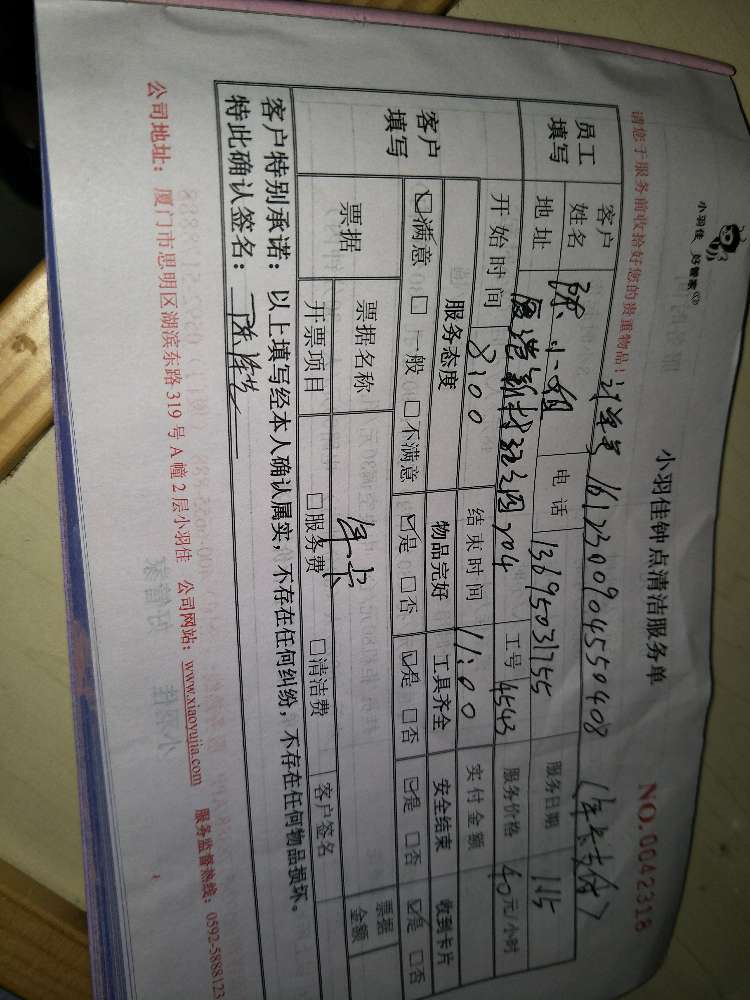 小羽佳 好管家
小羽佳钟点清洁服务单
NO.0042318
请您于服务前收拾好您的贵重物品!
计单号 1612300904550408 (年卡支付)
员工填写 客户姓名 陈小姐 电话 13695031755 服务日期 1.15
地址 204 工号 4543 服务价格 40元/小时
开始时间 8:00 结束时间 11:00 实付金额
客户填写 服务态度 物品完好 工具齐全 安全结束 收到卡片
☑满意 □一般 □不满意 ☑是 □否 ☑是 □否 ☑是 □否 ☑是 □否
票据 票据名称 年卡 客户签名 票据金额
开票项目 □服务费 □清洁费
客户特别承诺:以上填写经本人确认属实,不存在任何纠纷,不存在任何物品损坏。
特此确认签名:
公司地址:厦门市思明区湖滨东路319号A幢2层小羽佳 公司网站:www.xiaoyujia.com 服务监督热线:0592-5888123